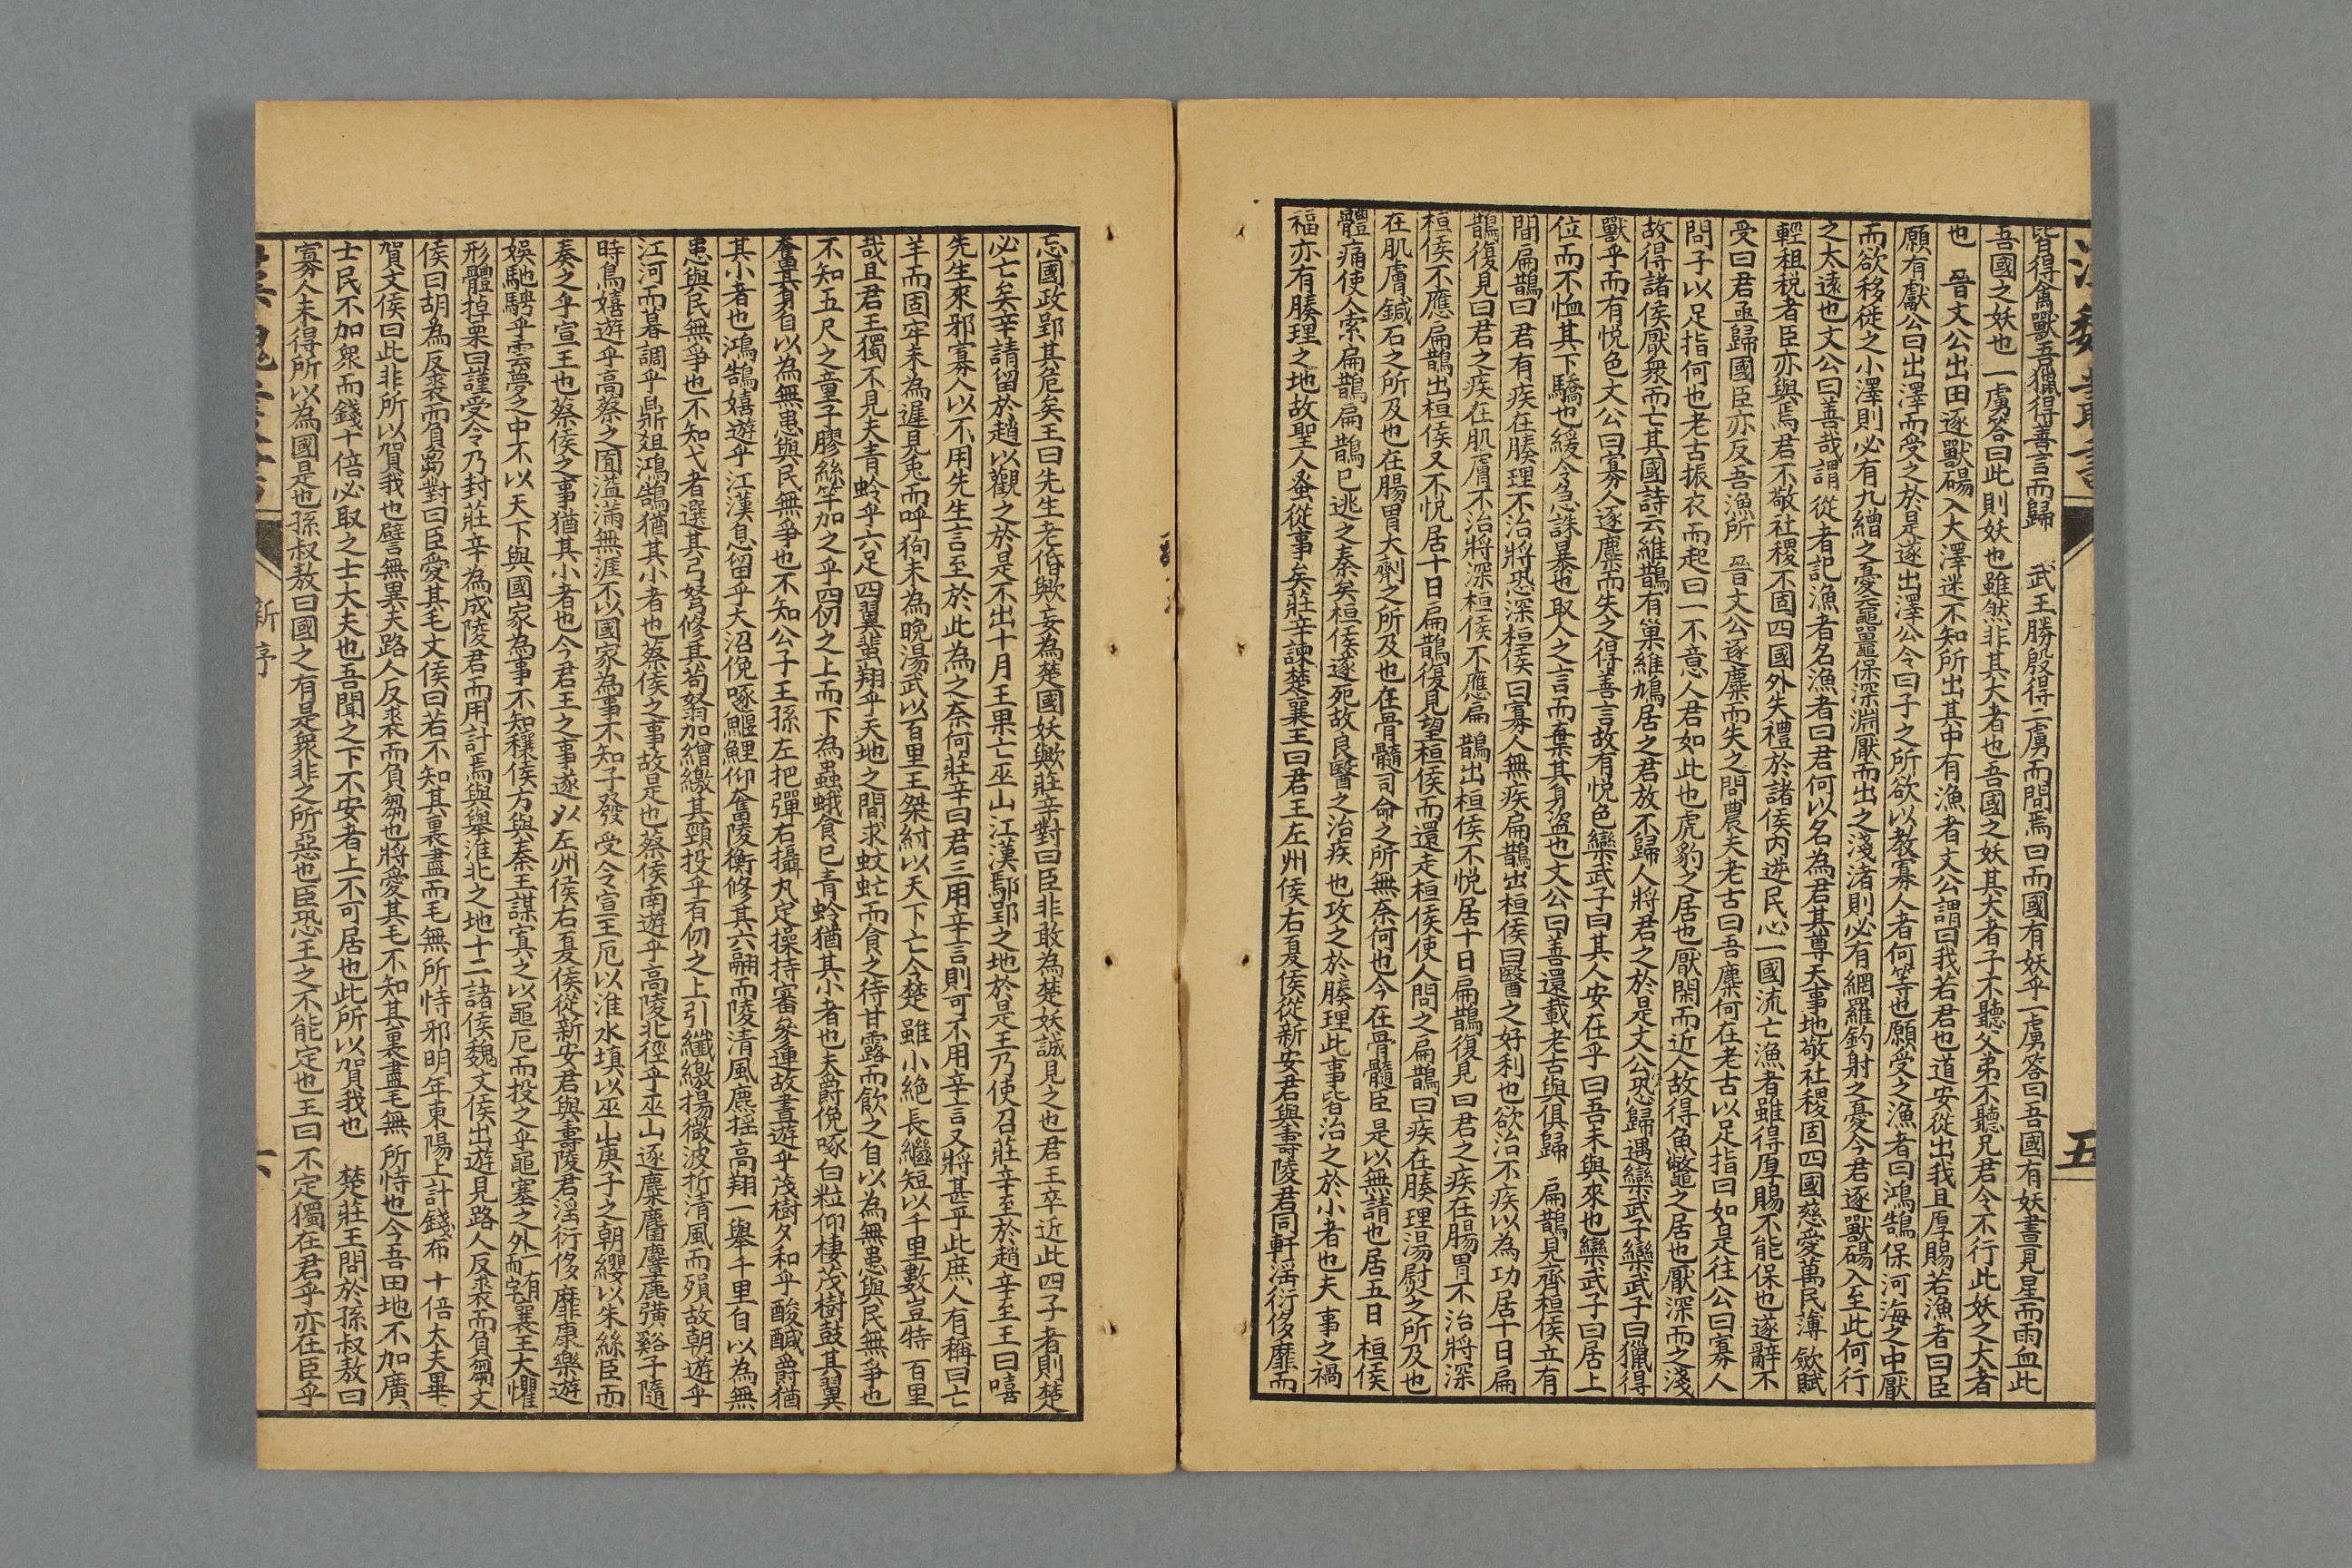 漢魏叢書 五
皆得禽獸吾獵得善言而歸　武王勝殷得二虜而問焉曰而國有妖乎一虜答曰吾國有妖晝見星而雨血此
吾國之妖也一虜答曰此則妖也雖然非其大者也吾國之妖其大者子不聽父弟不聽兄君令不行此妖之大者
也　晉文公出田逐獸碭入大澤迷不知所出其中有漁者文公謂曰我若君也道安從出我且厚賜若漁者曰臣
願有獻公曰出澤而受之於是遂出澤公令曰子之所欲以教寡人者何等也願受之漁者曰鴻鵠保河海之中厭
而欲移徙之小澤則必有丸繒之憂黿鼉保深淵厭而出之淺渚則必有網羅釣射之憂今君逐獸碭入至此何行
之太遠也文公曰善哉謂從者記漁者名漁者曰君何以名為君其尊天事地敬社稷固四國慈愛萬民薄歛賦
輕租稅者臣亦與焉君不敬社稷不固四國外失禮於諸侯內逆民心一國流亡漁者雖得厚賜不能保也遂辭不
受曰君亟歸國臣亦反吾漁所　晉文公逐麋而失之問農夫老古曰吾麋何在老古以足指曰如是往公曰寡人
問子以足指何也老古振衣而起曰一不意人君如此也虎豹之居也厭閑而近人故得魚鱉之居也厭深而之淺
故得諸侯厭衆而亡其國詩云維鵲有巢維鳩居之君放不歸人將君之於是文公恐歸遇欒武子欒武子曰獵得
獸乎而有悅色文公曰寡人逐麋而失之得善言故有悅色欒武子曰其人安在乎曰吾未與來也欒武子曰居上
位而不恤其下驕也緩令急誅暴也取人之言而棄其身盜也文公曰善還載老古與俱歸　扁鵲見齊桓侯立有
間扁鵲曰君有疾在腠理不治將恐深桓侯曰寡人無疾扁鵲出桓侯曰醫之好利也欲治不疾以為功居十日扁
鵲復見曰君之疾在肌膚不治將深桓侯不應扁鵲出桓侯不悅居十日扁鵲復見曰君之疾在腸胃不治將深
桓侯不應扁鵲出桓侯又不悅居十日扁鵲復見望桓侯而還走桓侯使人問之扁鵲曰疾在腠理湯熨之所及也
在肌膚鍼石之所及也在腸胃大劑之所及也在骨髓司命之所無奈何也今在骨髓臣是以無請也居五日桓侯
體痛使人索扁鵲扁鵲已逃之秦矣桓侯遂死故良醫之治疾也攻之於腠理此事皆治之於小者也夫事之禍
福亦有腠理之地故聖人蚤從事矣莊辛諫楚襄王曰君王左州侯右夏侯從新安君與壽陵君同軒淫衍侈靡而
忘國政郢其危矣王曰先生老悖歟妄為楚國妖歟莊辛對曰臣非敢為楚妖誠見之也君王卒近此四子者則楚
必亡矣辛請留於趙以觀之於是不出十月王果亡巫山江漢鄢郢之地於是王乃使召莊辛至於趙辛至王曰嘻
先生來邪寡人以不用先生言至於此為之奈何莊辛曰君三用辛言則可不用辛言又將甚乎此庶人有稱曰亡
羊而固牢未為遲見兎而呼狗未為晚湯武以百里王桀紂以天下亡今楚雖小絶長繼短以千里數豈特百里
哉且君王獨不見夫青蛉乎六足四翼蜚翔乎天地之間求蚊虻而食之待甘露而飲之自以為無患與民無爭也
不知五尺之童子膠絲竿加之乎四仞之上而下為蟲蛾食已青蛉猶其小者也夫爵俛啄白粒仰棲茂樹鼓其翼
奮其身自以為無患與民無爭也不知公子王孫左把彈右攝丸定操持審參連故晝遊乎茂樹夕和乎酸醎爵猶
其小者也鴻鵠嬉遊乎江漢息留乎大沼俛啄鰋鯉仰奮陵衡修其六翮而陵清風麃搖高翔一舉千里自以為無
患與民無爭也不知弋者選其弓弩修其䈇翳加繒繳其頸投乎百仞之上引纖繳揚微波折清風而殞故朝遊乎
江河而暮調乎鼎俎鴻鵠猶其小者也蔡侯之事故是也蔡侯南遊乎高陵北徑乎巫山逐麋麕麞鹿彉谿子隨
時鳥嬉遊乎高蔡之囿溢滿無涯不以國家為事不知子發受令宣王厄以淮水填以巫山庚子之朝纓以朱絲臣而
奏之乎宣王也蔡侯之事猶其小者也今君王之事遂以左州侯右夏侯從新安君與壽陵君淫衍侈靡康樂遊
娛馳騁乎雲夢之中不以天下與國家為事不知穰侯方與秦王謀寘之以黽厄而投之乎黽塞之外一有而字襄王大懼
形體掉栗曰謹受令乃封莊辛為成陵君而用計焉與舉淮北之地十二諸侯魏文侯出遊見路人反裘而負芻文
侯曰胡為反裘而負芻對曰臣愛其毛文侯曰若不知其裏盡而毛無所恃邪明年東陽上計錢布十倍大夫畢
賀文侯曰此非所以賀我也譬無異夫路人反裘而負芻也將愛其毛不知其裏盡毛無所恃也今吾田地不加廣
士民不加衆而錢十倍必取之士大夫也吾聞之下不安者上不可居也此所以賀我也　楚莊王問於孫叔敖曰
寡人未得所以為國是也孫叔敖曰國之有是衆非之所惡也臣恐王之不能定也王曰不定獨在君乎亦在臣乎
新序